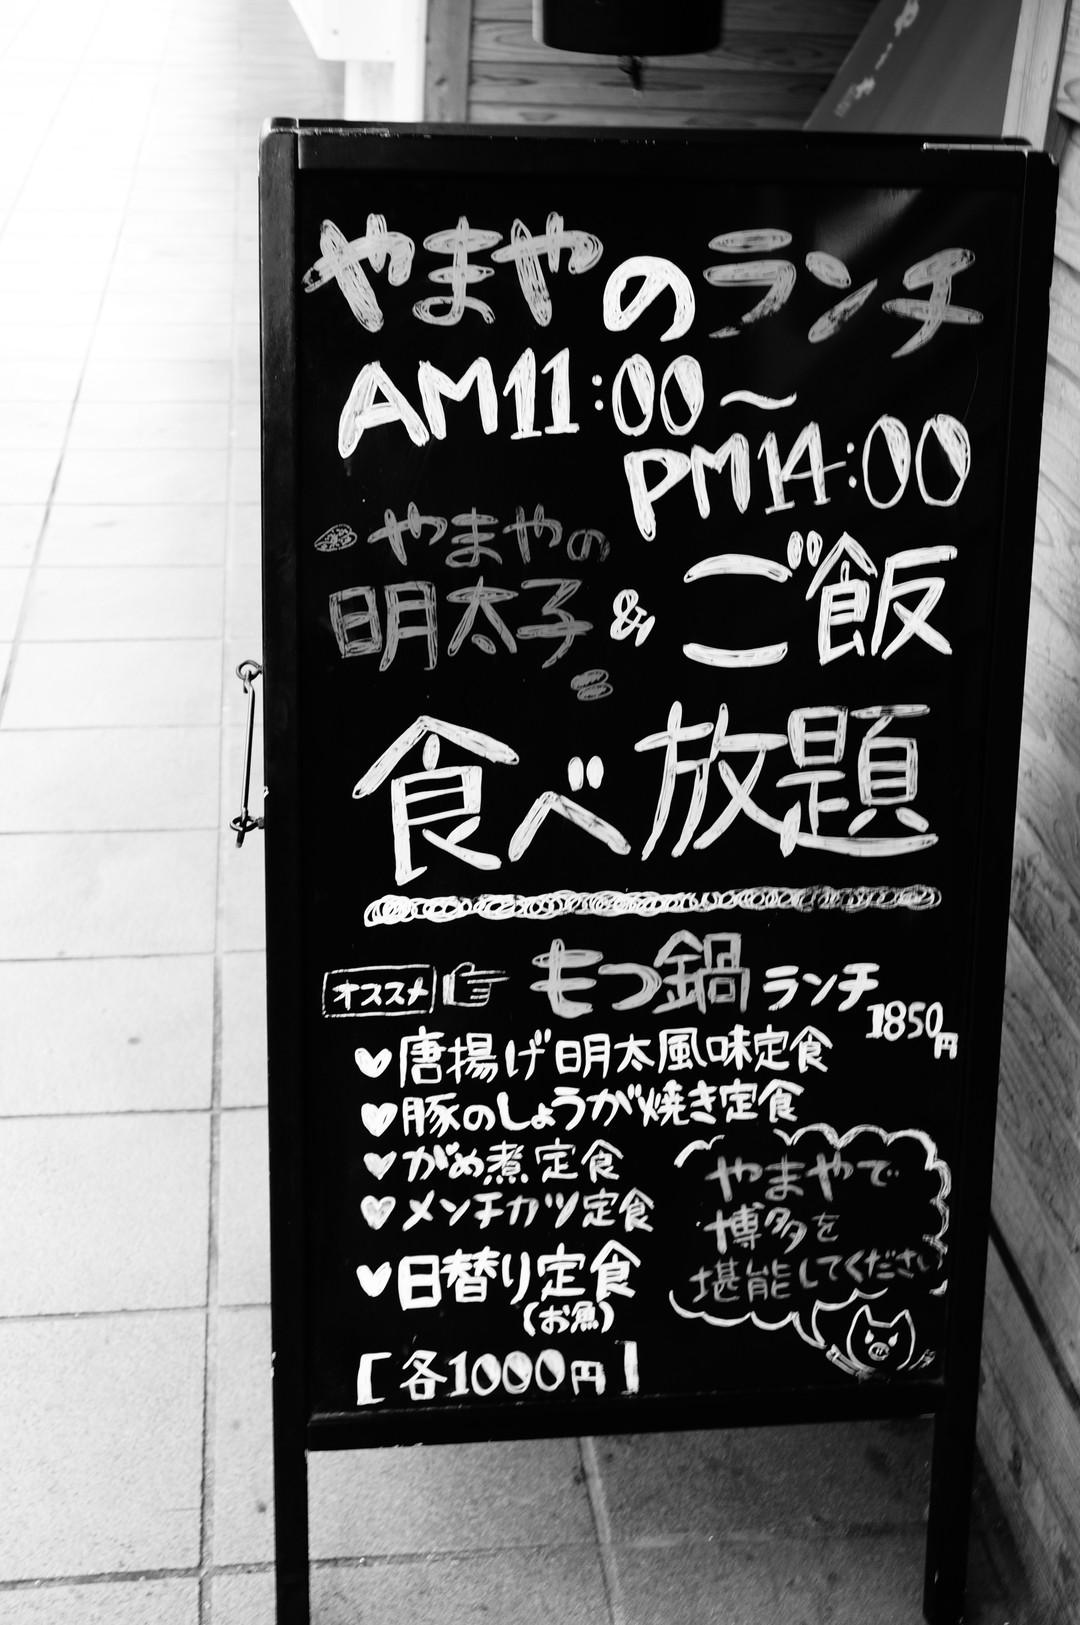 やまやのランチ
AM11:00～
PM14:00
やまやの
明太子 & ご飯
食べ放題
オススメ もつ鍋ランチ
1850円
唐揚げ明太風味定食
豚のしょうが焼き定食
がめ煮定食
メンチカツ定食
日替り定食
(お魚)
[各1000円]
やまやで
博多を
堪能してください